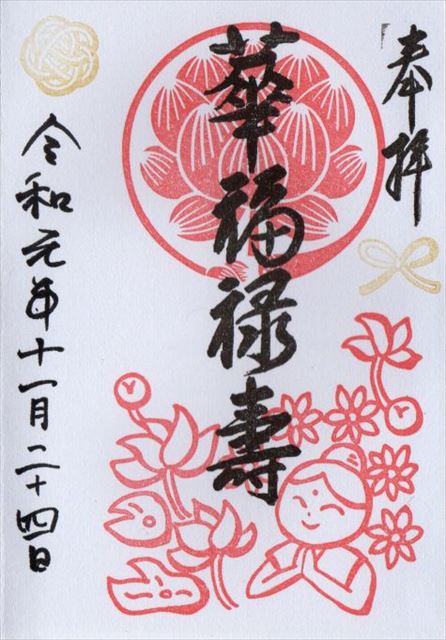 奉拝
華福禄寿
令和元年十一月二十四日